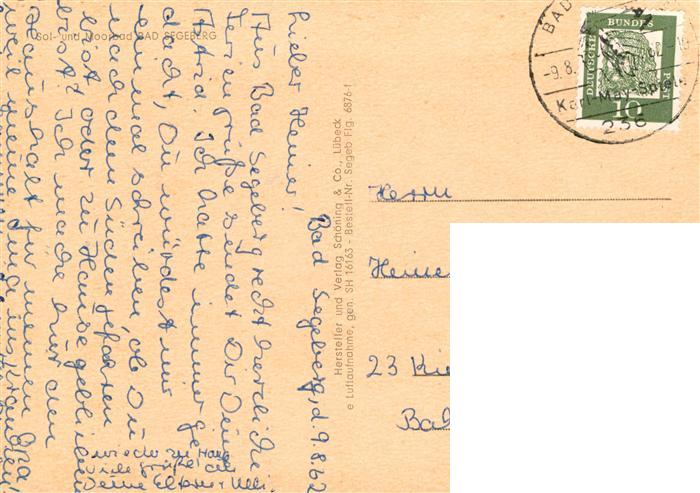 Sol- und Moorbad BAD SEGEBERG
Bad Segeberg, d. 9.8.62
Lieber Heiner!
Aus Bad Segeberg recht herzliche
Feriengrüße sendet Dir Deine
Astrid. Ich hatte immer ge-
dacht, Du würdest mir
einmal schreiben, ob Du
nach dem Süden gefahren
bist oder zu Hause geblieben
bist. Ich mache hier den
Haushalt für meinen Opa
weil meine Oma ins
wieder zu Haus
Viele Grüße an
Deine Eltern + Ulli.
Hersteller und Verlag Schöning & Co., Lübeck
e Luftaufnahme, gen. SH 16163 Bestell-Nr. Segeb Flg. 6876-1
BAD
-9.8.
Karl-May-Spiele
256
DEUTSCHE
BUNDES
POST
10
Herrn
Heine
23 Kie
Bal